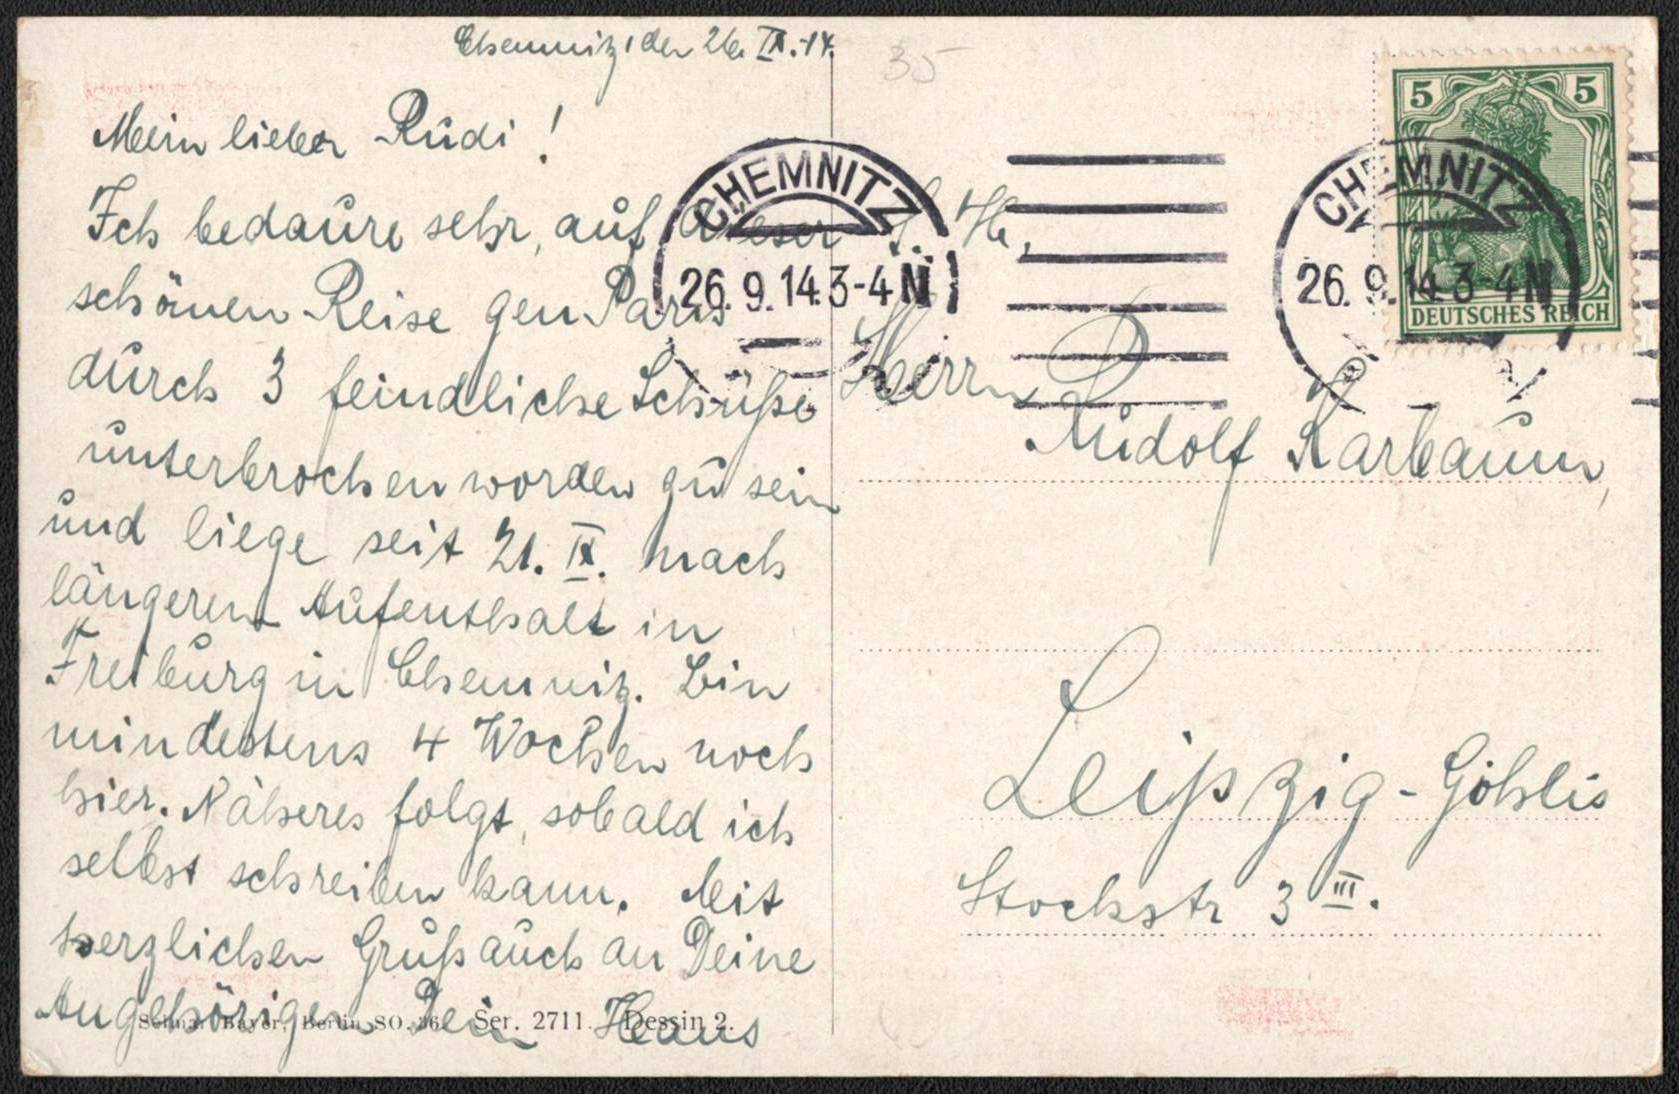 Chemnitz, den 26. IX. 14.
Mein lieber Rudi!
Ich bedaure sehr, auf dieser
schönen Reise gen Paris
durch 3 feindliche Schüße
unterbrochen worden zu sein
und liege seit 21. IX. nach
längerem Aufenthalt in
Freiburg in Chemnitz. Bin
mindestens 4 Wochen noch
hier. Näheres folgt, sobald ich
selbst schreiben kann. Mit
herzlichen Gruß auch an Deine
Angehörigen Dein Hans
Bayer, Berlin SO. 36. Ser. 2711. Dessin 2.
35
CHEMNITZ
26. 9. 14. 3-4 N
CHEMNITZ
26. 9. 14. 3-4 N
5 5
DEUTSCHES REICH
Herrn
Rudolf Karbaum,
Leipzig-Gohlis
Stockstr 3 III.